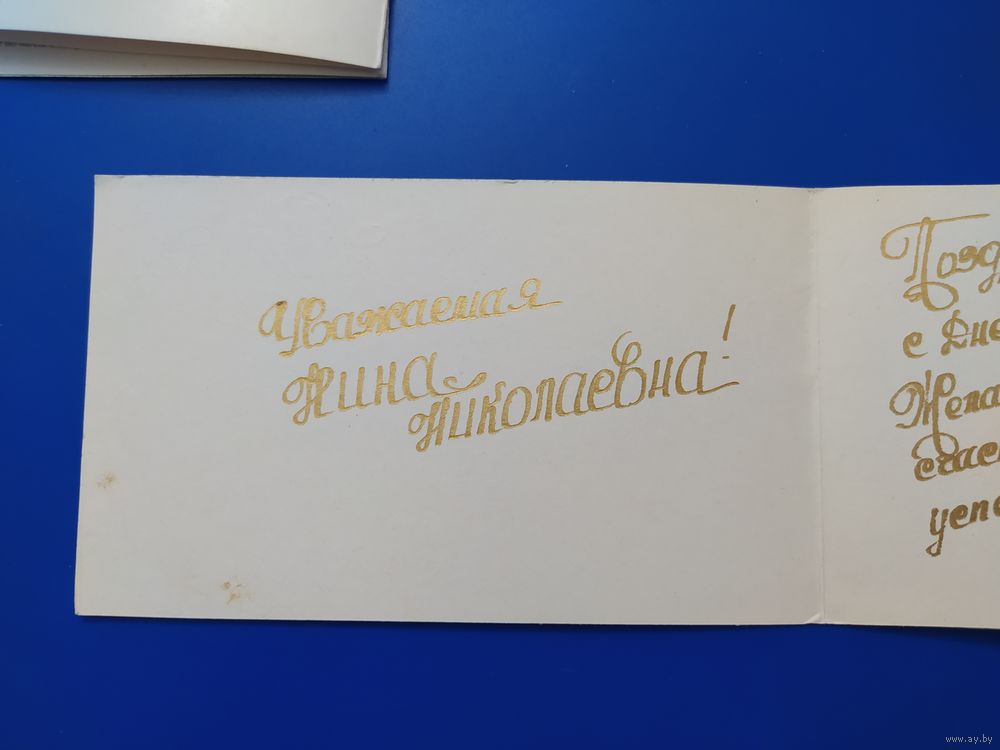 Уважаемая
Нина
Николаевна!
Позд
с Дне
Жела
счас
успе
www.ay.by